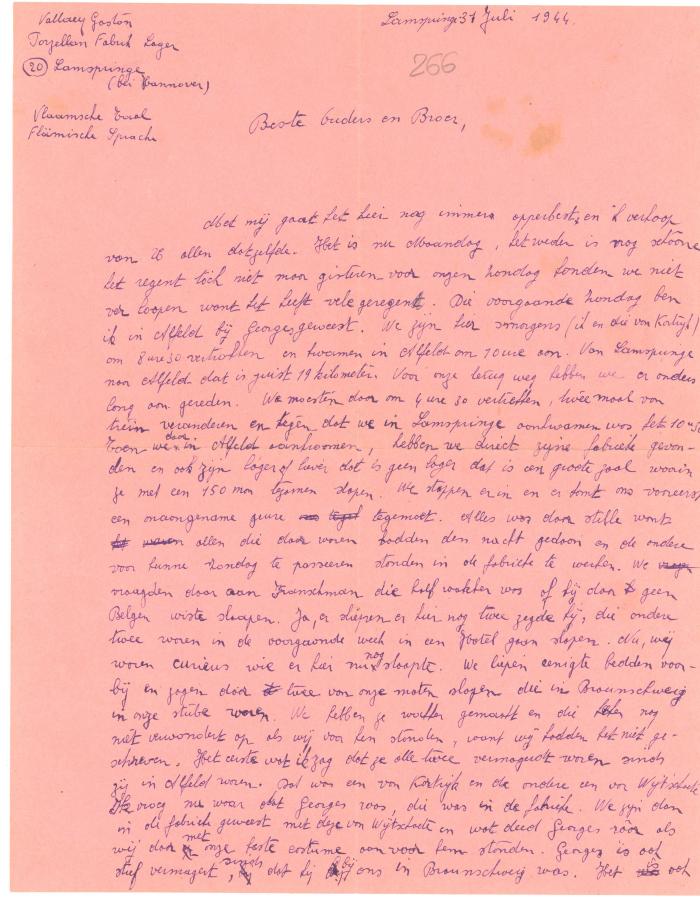 Vallaey Gaston
Porzellan Fabrik Lager
(20) Lamspringe
(bei Hannover)
Vlaamsche Taal
Flämische Sprache
Lamspringe 31 Juli 1944.
266
Beste Ouders en Broer,
Met mij gaat het hier nog immers opperbest, en 'k verhoop
van U allen dat zelfde. Het is nu Maandag, het weder is nog schoone
het regent toch niet maar gisteren voor onzen Zondag konden we niet
ver loopen want het heeft vele geregent. Die voorgaande Zondag ben
ik in Alfeld bij Georges geweest. We zijn hier smorgens (ik en die van Kortrijk)
om 8 ure 30 vertrokken en kwamen in Alfeld om 10 ure aan. Van Lamspringe
naar Alfeld dat is juist 19 kilometer. Voor onze terug weg hebben we er anders
lang aan gereden. We moesten daar om 4 ure 30 vertrekken, twee maal van
trein veranderen en tegen dat we in Lamspringe aankwamen was het 10 ure
Toen we daar in Alfeld aankwamen, hebben we direct zijne fabriek gevon-
den en ook zijn lager of liever dat is geen lager dat is een groote zaal waarin
ze met een 150 man tezamen slapen. We stappen er in en er komt ons vooreerst
een onaangename geure tegemoet. Alles was daar stille want
allen die daar waren hadden den nacht gedaan en de andere
voor hunne Zondag te passeeren stonden in de fabriek te werken. We
vraagden daar aan Franschman die half wakker was of hij daar geen
Belgen wiste slaapen. Ja, er sliepen er hier nog twee zegde hij, die andere
twee waren in de voorgaande week in een Hotel gaan slapen. Nu, wij
waren curieus wie er hier nu nog slaapte. We liepen eenigte bedden voor-
bij en zagen daar twee van onze maten slapen die in Braunschweig
in onze stube waren. We hebben ze wakker gemaakt en die keken nog
niet verwondert op als wij voor hen stonden, want wij hadden het niet ge-
schreven. Het eerste wat ik zag dat ze alle twee vermagert waren sinds
zij in Alfeld waren. Dat was een van Kortrijk en de andere een van Wijtschate
Ik vroeg nu waar dat Georges was, die was in de fabriek. We zijn dan
in de fabriek geweest met deze van Wijtschate en wat deed Georges raar als
wij daar met onze beste costume aan voor hem stonden. Georges is ook
stief vermagert, sinds dat hij bij ons in Braunschweig was. Het ook